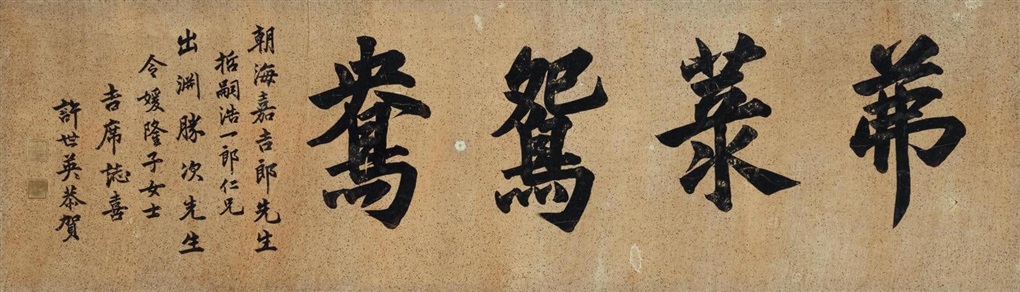 茀菉鴛鴦
朝海嘉吉郎先生
哲嗣浩一郎仁兄
出淵勝次先生
令媛隆子女士
吉席誌喜
許世英恭賀